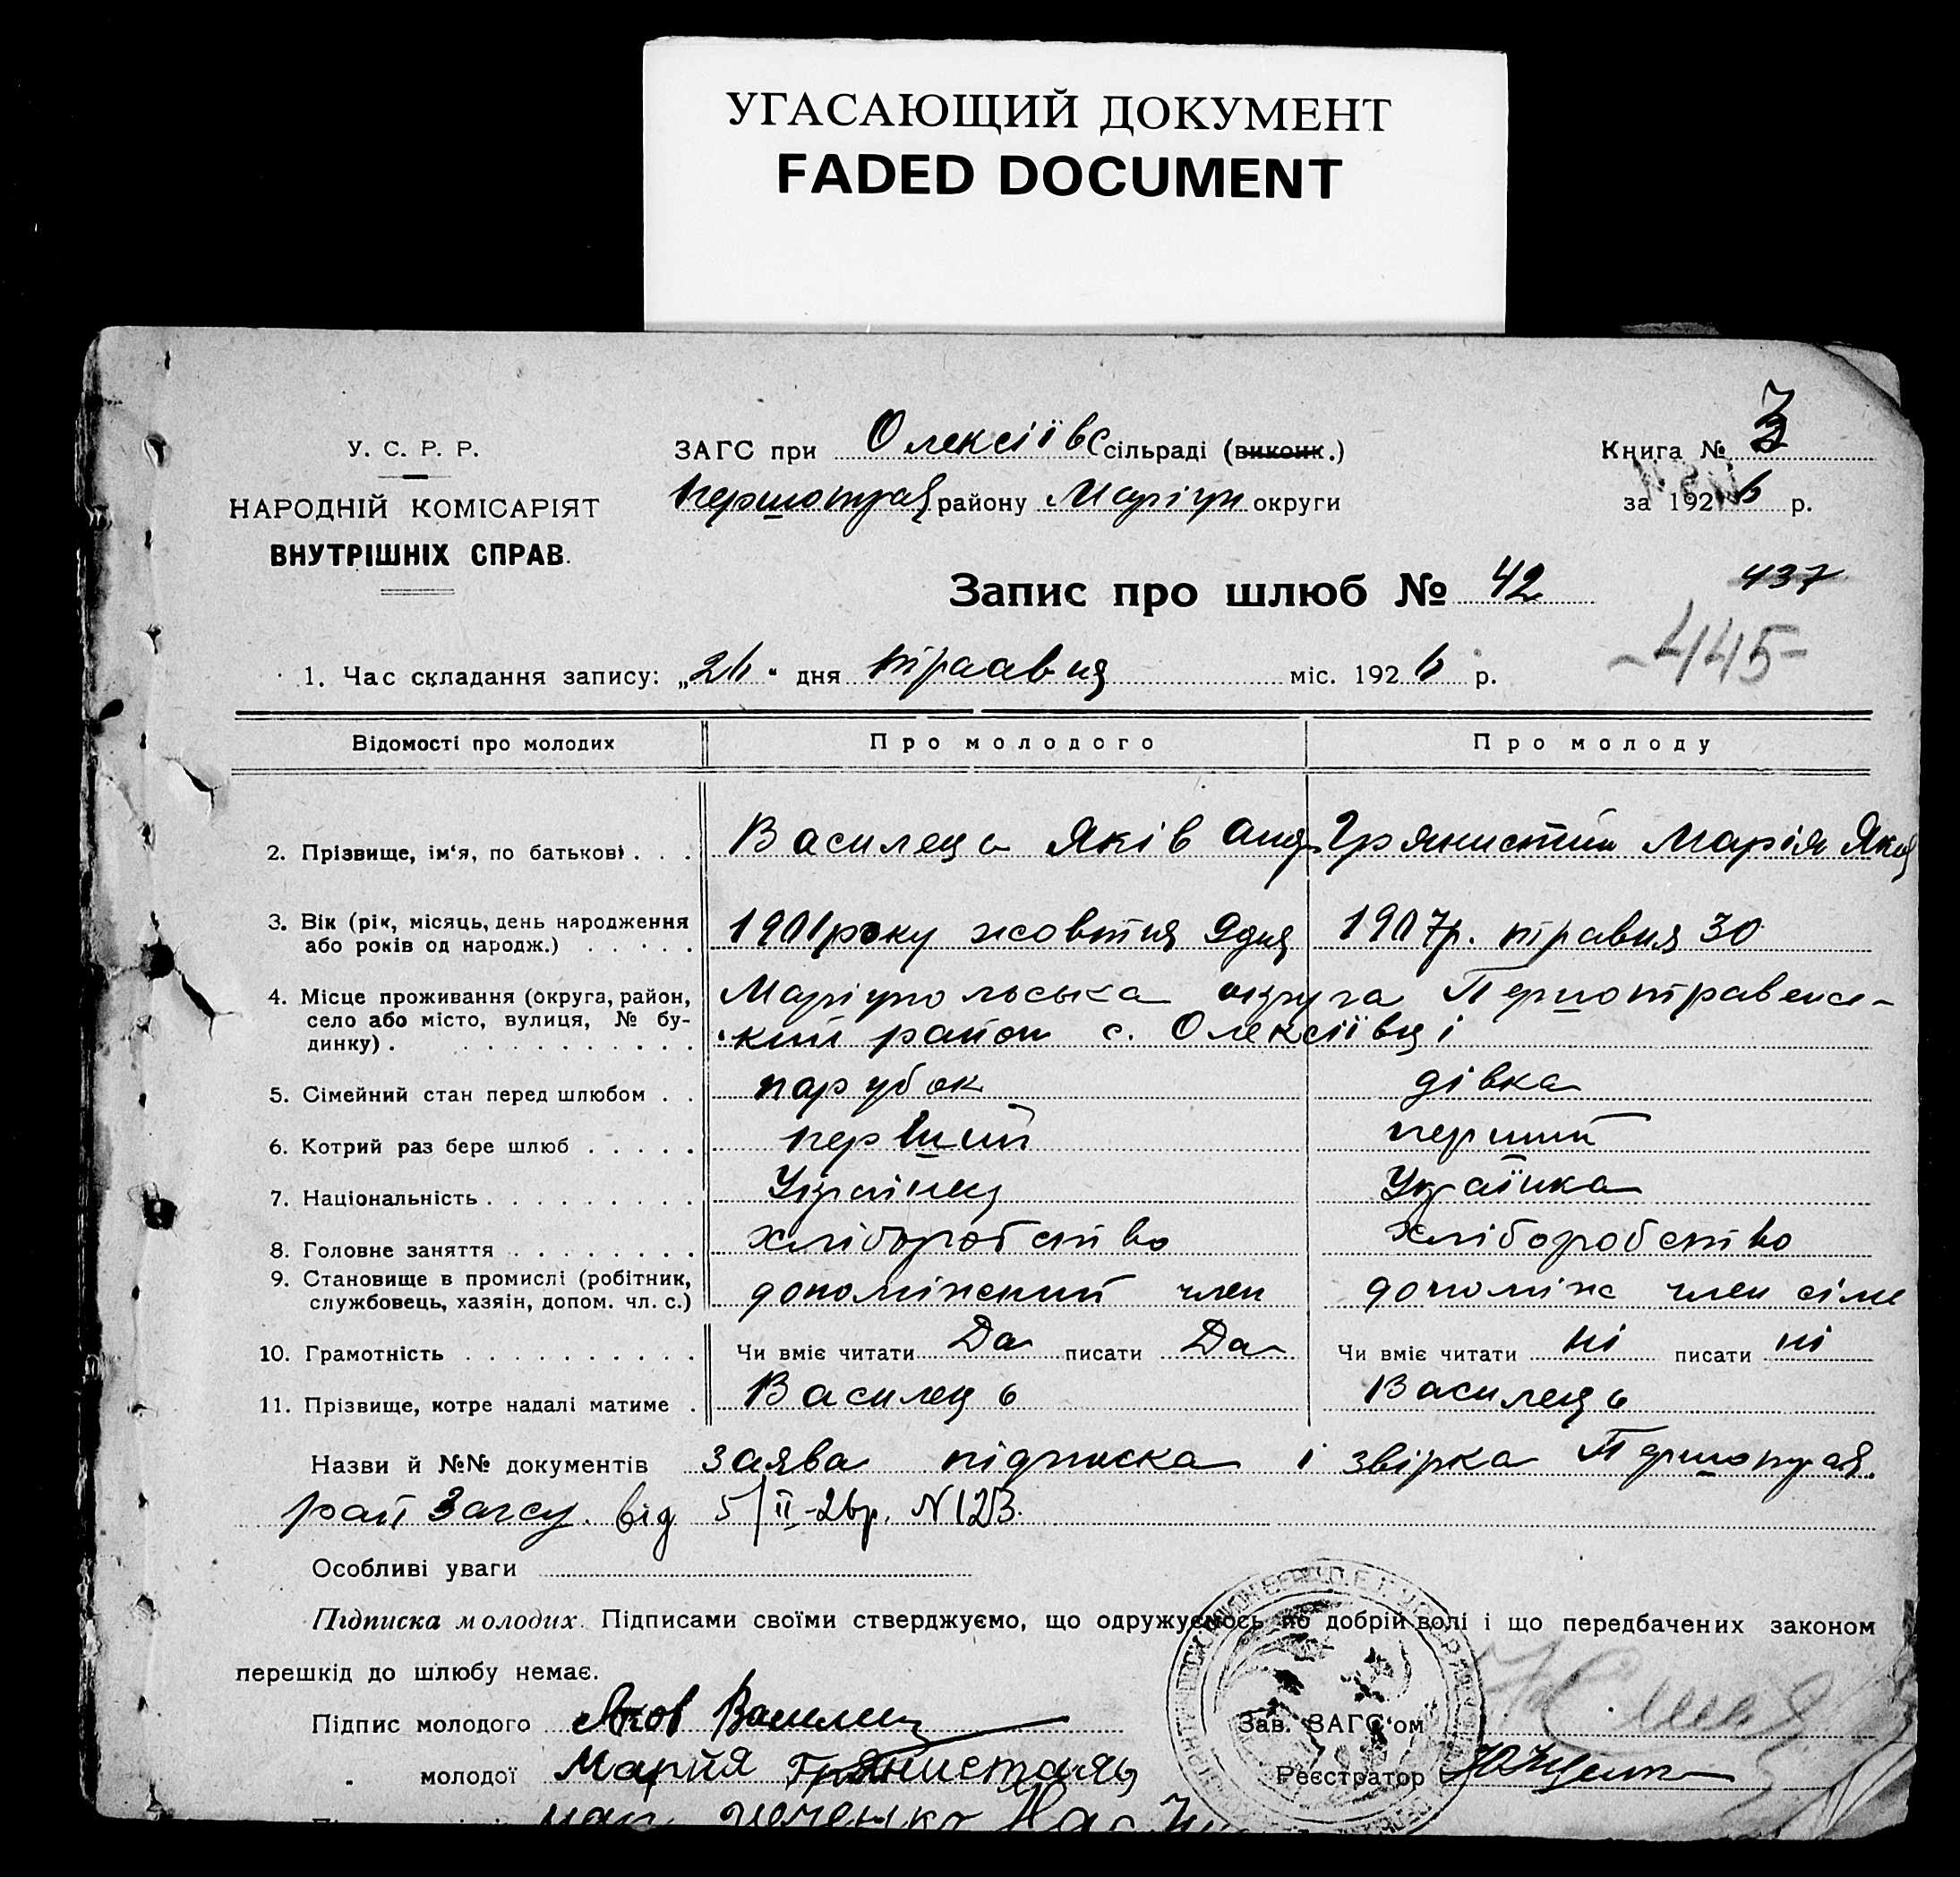 УГАСАЮЩИЙ ДОКУМЕНТ
FADED DOCUMENT
У. С. Р. Р.
НАРОДНІЙ КОМІСАРІЯТ
ВНУТРІШНІХ СПРАВ.
ЗАГС при Олексіївс сільраді (виконк.)
Першотрав району Маріуп округи
Книга № 3
за 1926 р.
Запис про шлюб № 42
437
-445-
1. Час складання запису: „26“ дня траавня міс. 1926 р.
Відомості про молодих Про молодого Про молоду
2. Прізвище, ім'я, по батькові . . . Василець Яків Анд Грянистий Марія Яков
3. Вік (рік, місяць, день народження
або років од народж.) . . . . . 1901 року жовтня 9 дня 1907р. травня 30
4. Місце проживання (округа, район, Маріупольська округа Першотравенс-
село або місто, вулиця, № бу- кий район с. Олексіївці
динку) . . . . . . . . . . .
5. Сімейний стан перед шлюбом . . парубок дівка
6. Котрий раз бере шлюб . . . . . перший перший
7. Національність . . . . . . . . . Українец Українка
8. Головне заняття . . . . . . . . хліборобство хліборобство
9. Становище в промислі (робітник,
службовець, хазяін, допом. чл. с.) допоміжний член допоміж член сіме
10. Грамотність . . . . . . . . . . Чи вміє читати Да писати Да Чи вміє читати ні писати ні
11. Прізвище, котре надалі матиме . Василець Василець
Назви й №№ документів заява підписка і звірка Першотрав.
рай Загсу. від 5/II-26р. N 123.
Особливі уваги
Підписка молодих. Підписами своїми стверджуємо, що одружуємось по добрій волі і що передбачених законом
перешкід до шлюбу немає.
Підпис молодого Яков Василец Зав. ЗАГС'ом
„ молодої Марйя Грянистая Реєстратор